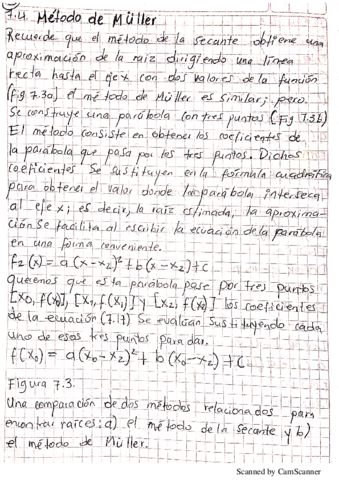 7.4. Método de Müller
Recuerde que el método de la secante obtiene una
aproximación de la raiz dirigiendo una linea
recta hasta el eje x con dos valores de la función
(fig 7.3a) el método de Müller es similar; pero.
Se construye una parábola con tres puntos (Fig 7.3b)
El método consiste en obtener los coeficientes de
la parábola que pasa por los tres puntos. Dichos
coeficientes Se sustituyen en la formula cuadrática
para obtener el valor donde la parábola interseca
al eje x; es decir, la raiz estimada, la aproxima-
ción se facilita al escribir la ecuación de la parabola
en una forma conveniente.
f2(x) = a(x-x2)²+b(x-x2)+c
queremos que esta parábola pase por tres puntos
[x0, f(x0)], [x1, f(x1)] y [x2, f(x2)] los coeficientes
de la ecuación (7.17) Se evalúan sustituyendo cada
uno de esos tres puntos para dar.
f(x0) = a(x0-x2)²+b(x0-x2)+c.
Figura 7.3.
Una comparación de dos métodos relacionados para
encontrar raíces: a) el método de la secante y b)
el método de Müller.
Scanned by CamScanner